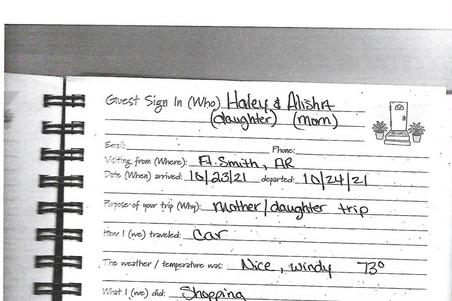 Guest Sign In (Who) Haley & Alisha
(daughter) (mom)
Email: Phone:
Visiting from (Where): Ft. Smith, AR
Date (When) arrived: 10/23/21 departed: 10/24/21
Purpose of your trip (Why): Mother/daughter trip
How I (we) traveled: Car
The weather / temperature was: Nice, windy 73°
What I (we) did: Shopping